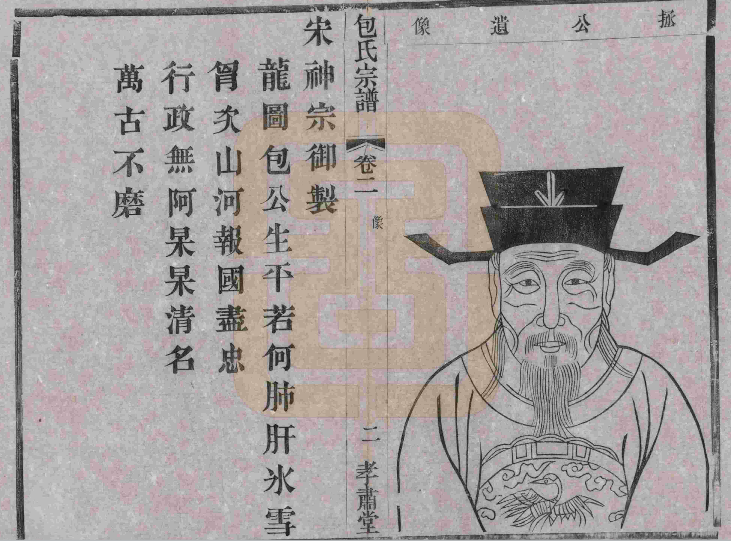 拯公遺像
包氏宗譜
卷二
像
二
孝肅堂
宋神宗御製
龍圖包公生平若何肺肝氷雪
胷次山河報國盡忠
行政無阿杲杲清名
萬古不磨